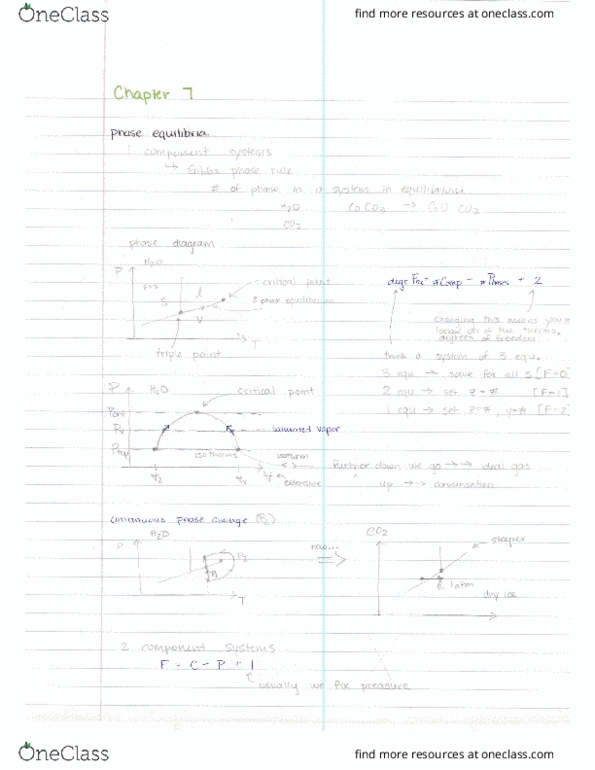 OneClass
find more resources at oneclass.com
Chapter 7
phase equilibria
1 component systems
↳ Gibbs phase rule
# of phase in a system in equilibrium
H2O CaCO3 → CaO CO2
CO2
phase diagram
P H2O
critical point
S l
2 phase equilibrium
V
T
triple point
+ 2
changing this means you're
degrees of freedom
think a system of 3 equ.
3 equ → solve for all 3 [F=0]
2 equ → set z=# [F=1]
1 equ → set z=#, y=# [F=2]
P H2O critical point
saturated vapor
isotherms isotherm
extensive
Further down we go → ideal gas
up → condensation
continuous phase change (P2)
H2O
P
P2
P1
T
now...
CO2
steeper
1 atm
dry ice
2 component systems
F = C - P + 1
usually we fix pressure
OneClass
find more resources at oneclass.com